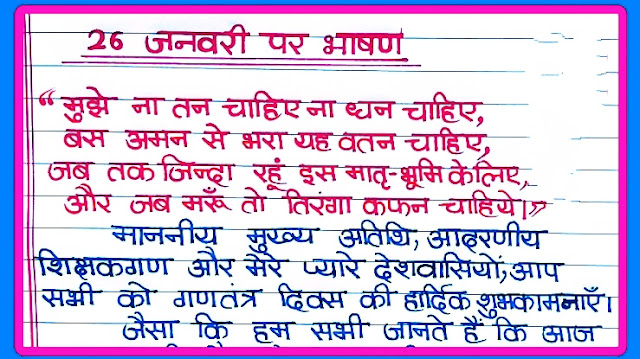 26 जनवरी पर भाषण
“मुझे ना तन चाहिए ना धन चाहिए,
बस अमन से भरा यह वतन चाहिए,
जब तक जिन्दा रहूं इस मातृ-भूमि के लिए,
और जब मरूँ तो तिरंगा कफन चाहिये।”
माननीय मुख्य अतिथि, आदरणीय
शिक्षकगण और मेरे प्यारे देशवासियों, आप
सभी को गणतंत्र दिवस की हार्दिक शुभकामनाएँ।
जैसा कि हम सभी जानते हैं कि आज